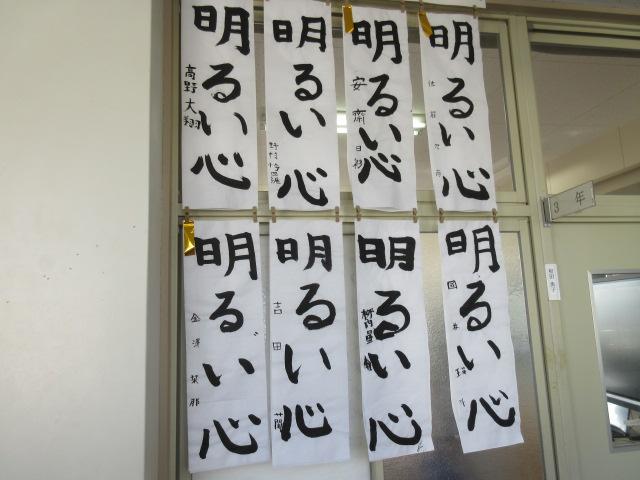 明るい心
高野大翔
明るい心
明るい心
安齋
明るい心
3年
明るい心
金澤
明るい心
吉田蘭
明るい心
明るい心